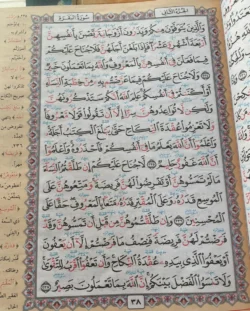 الجزء الثاني سورة البقرة
وَالَّذِينَ يُتَوَفَّوْنَ مِنكُمْ وَيَذَرُونَ أَزْوَاجًا يَتَرَبَّصْنَ بِأَنفُسِهِنَّ
أَرْبَعَةَ أَشْهُرٍ وَعَشْرًا فَإِذَا بَلَغْنَ أَجَلَهُنَّ فَلَا جُنَاحَ عَلَيْكُمْ
فِيمَا فَعَلْنَ فِي أَنفُسِهِنَّ بِالْمَعْرُوفِ وَاللَّهُ بِمَا تَعْمَلُونَ خَبِيرٌ
وَلَا جُنَاحَ عَلَيْكُمْ فِيمَا عَرَّضْتُم بِهِ مِنْ خِطْبَةِ النِّسَاءِ
أَوْ أَكْنَنتُمْ فِي أَنفُسِكُمْ عَلِمَ اللَّهُ أَنَّكُمْ سَتَذْكُرُونَهُنَّ
وَلَٰكِن لَّا تُوَاعِدُوهُنَّ سِرًّا إِلَّا أَن تَقُولُوا قَوْلًا مَّعْرُوفًا
وَلَا تَعْزِمُوا عُقْدَةَ النِّكَاحِ حَتَّىٰ يَبْلُغَ الْكِتَابُ أَجَلَهُ
وَاعْلَمُوا أَنَّ اللَّهَ يَعْلَمُ مَا فِي أَنفُسِكُمْ فَاحْذَرُوهُ وَاعْلَمُوا
أَنَّ اللَّهَ غَفُورٌ حَلِيمٌ لَّا جُنَاحَ عَلَيْكُمْ إِن طَلَّقْتُمُ النِّسَاءَ
مَا لَمْ تَمَسُّوهُنَّ أَوْ تَفْرِضُوا لَهُنَّ فَرِيضَةً وَمَتِّعُوهُنَّ عَلَى
الْمُوسِعِ قَدَرُهُ وَعَلَى الْمُقْتِرِ قَدَرُهُ مَتَاعًا بِالْمَعْرُوفِ حَقًّا عَلَى
الْمُحْسِنِينَ وَإِن طَلَّقْتُمُوهُنَّ مِن قَبْلِ أَن تَمَسُّوهُنَّ وَقَدْ
فَرَضْتُمْ لَهُنَّ فَرِيضَةً فَنِصْفُ مَا فَرَضْتُمْ إِلَّا أَن يَعْفُونَ
أَوْ يَعْفُوَا الَّذِي بِيَدِهِ عُقْدَةُ النِّكَاحِ وَأَن تَعْفُوا أَقْرَبُ لِلتَّقْوَىٰ
وَلَا تَنسَوُا الْفَضْلَ بَيْنَكُمْ إِنَّ اللَّهَ بِمَا تَعْمَلُونَ بَصِيرٌ
٣٨